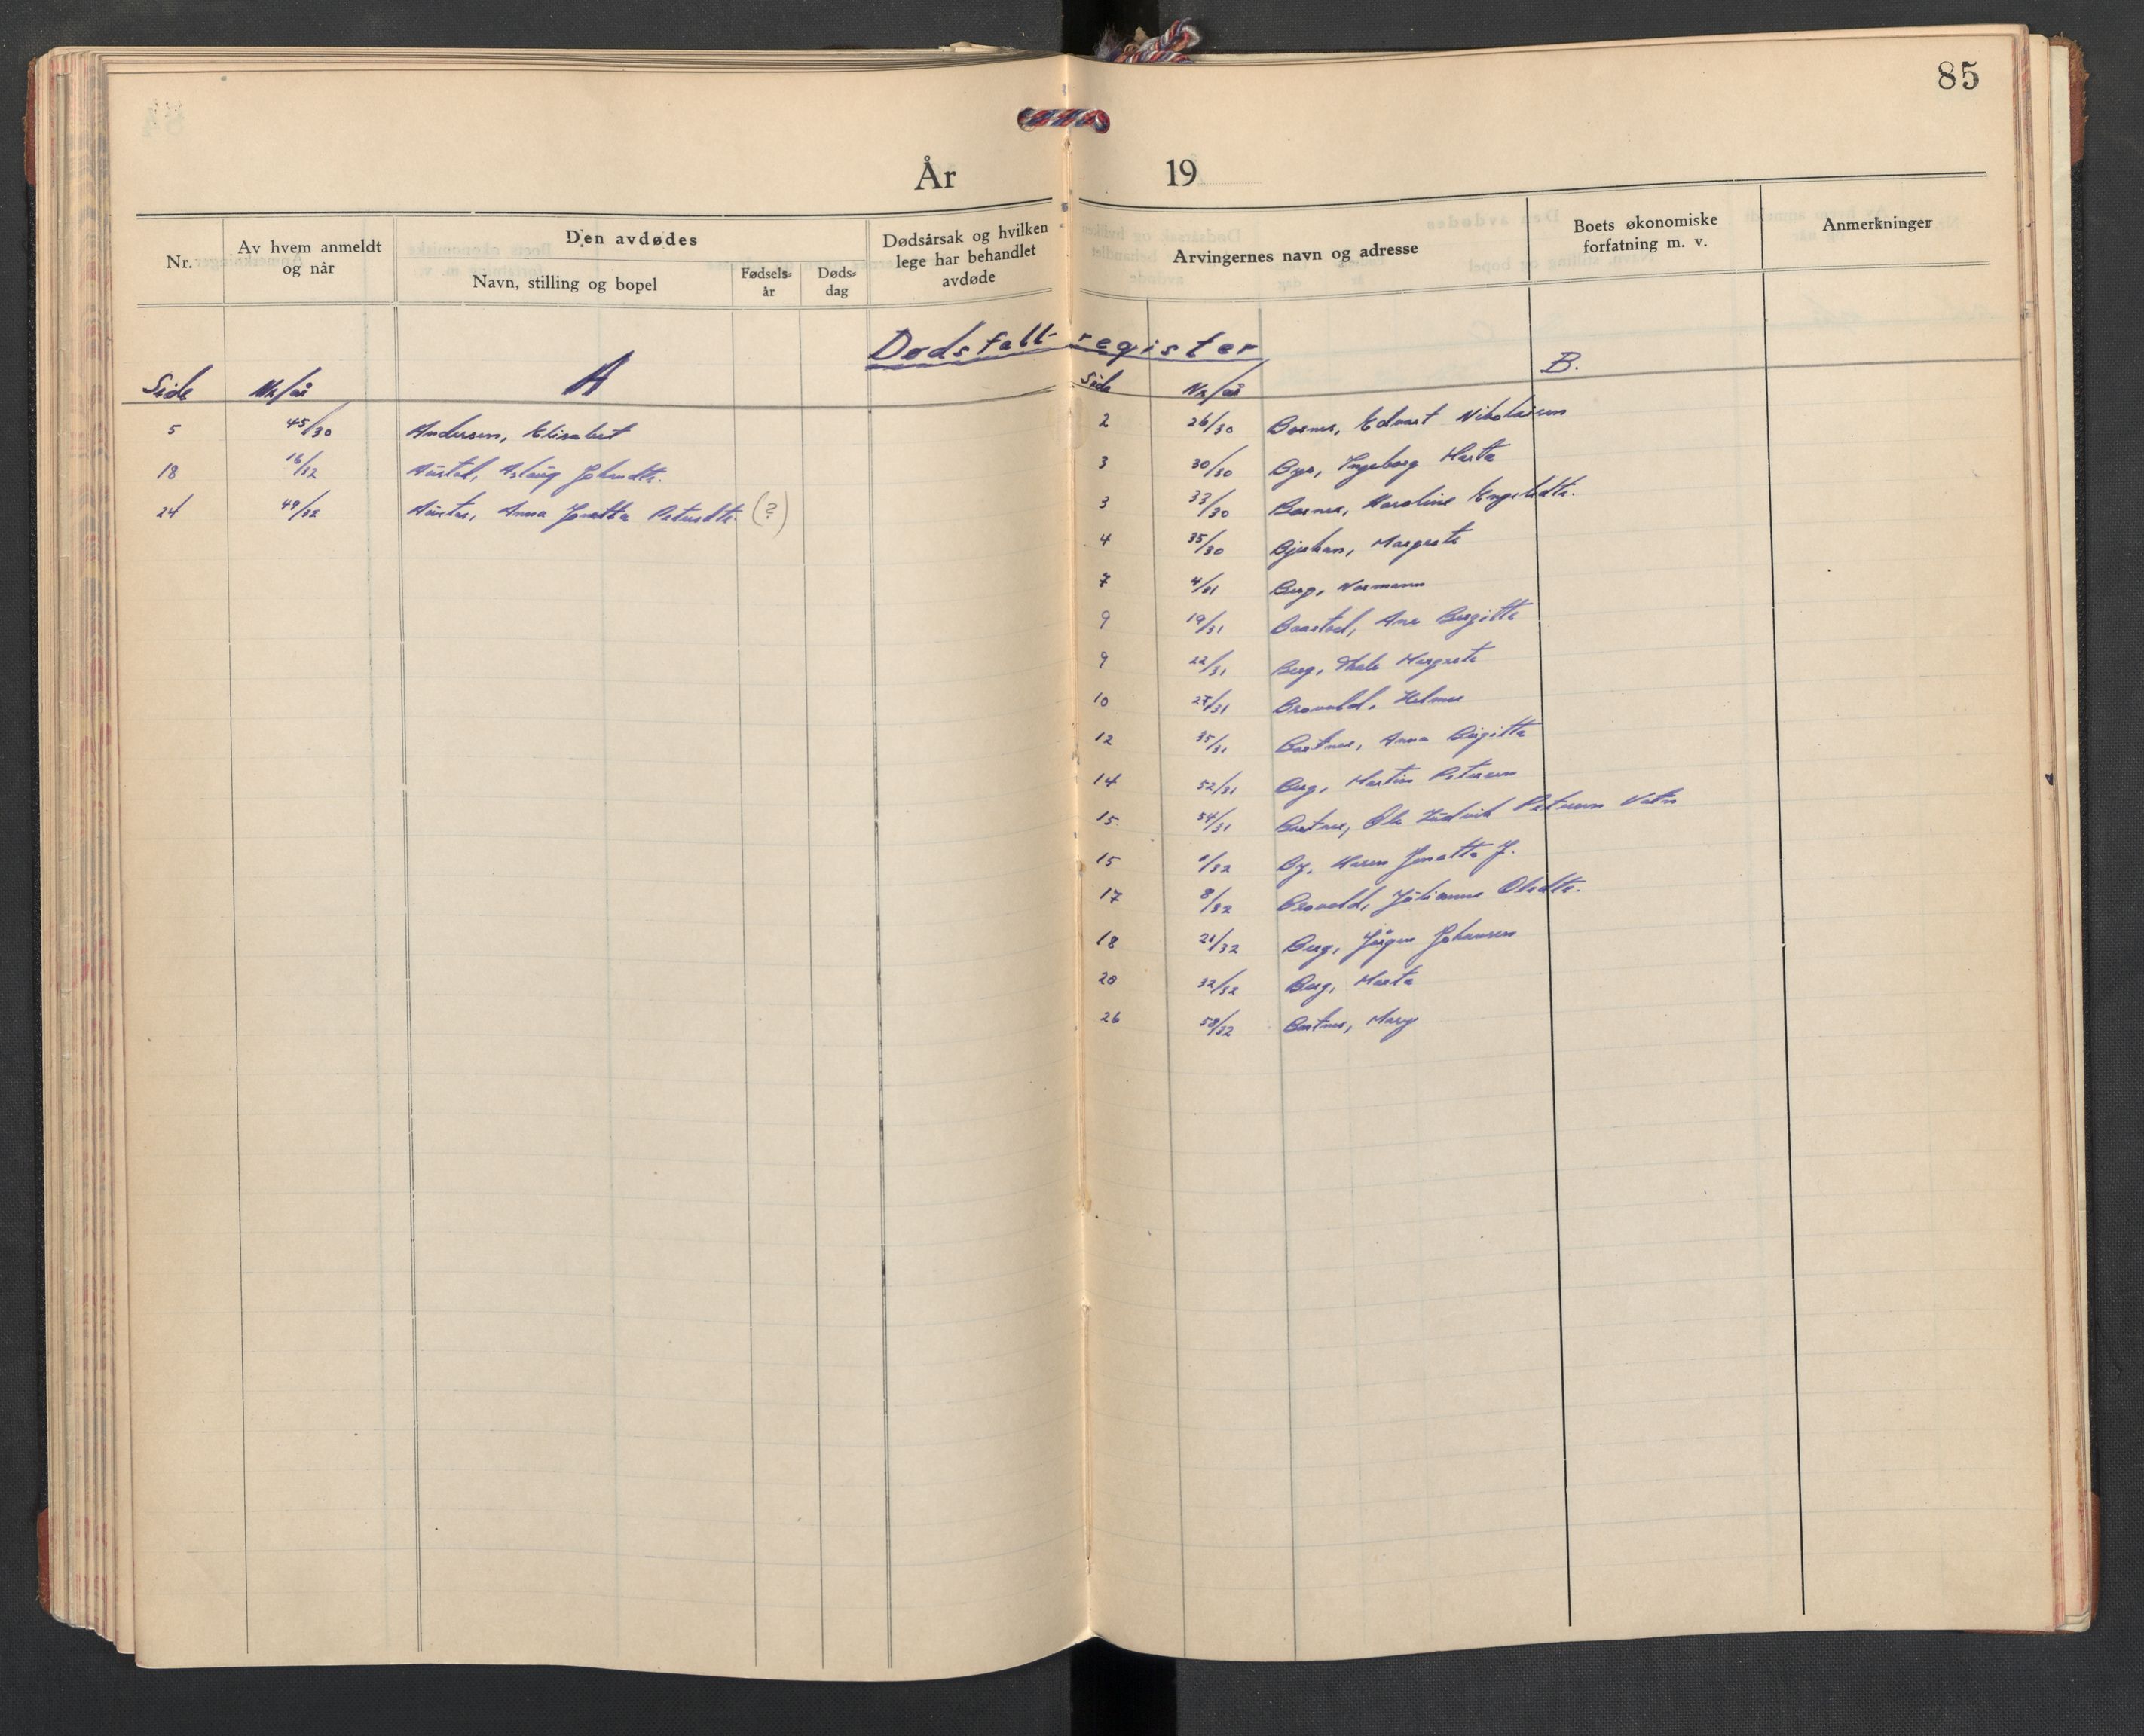 85
År 19
Nr.
Av hvem anmeldt
og når
Den avdødes
Navn, stilling og bopel
Fødsels-
år
Døds-
dag
Dødsårsak og hvilken
lege har behandlet
avdøde
Arvingernes navn og adresse
Boets økonomiske
forfatning m. v.
Anmerkninger
Dødsfall-register
Side Nr/år A
5 45/30 Andersen, Elisabet
18 16/32 Austad, Aslaug Johansdtr.
24 49/32 Anna Jonetta Petersdtr. (?)
Side Nr/år B.
2 26/30 Edvart Nikolaisen
3 30/30 Bye, Ingeborg Marta
3 33/30 Karoline
4 35/30 Margrete
7 4/31 Berg, Normann
9 19/31 Ane Bergitte
9 22/31 Berg, Margrete
10 27/31 Brovold, Helmer
12 35/31 Anna Birgitta
14 52/31 Berg, Martin Petersen
15 54/31 Ole Ludvik Petersen Vatn
15 /32 By, Maren Jonetta J.
17 8/32 Brovold, Julianne Olsdtr.
18 21/32 Berg, Jørgen Johansen
20 32/32 Berg, Marta
26 58/32 Mary